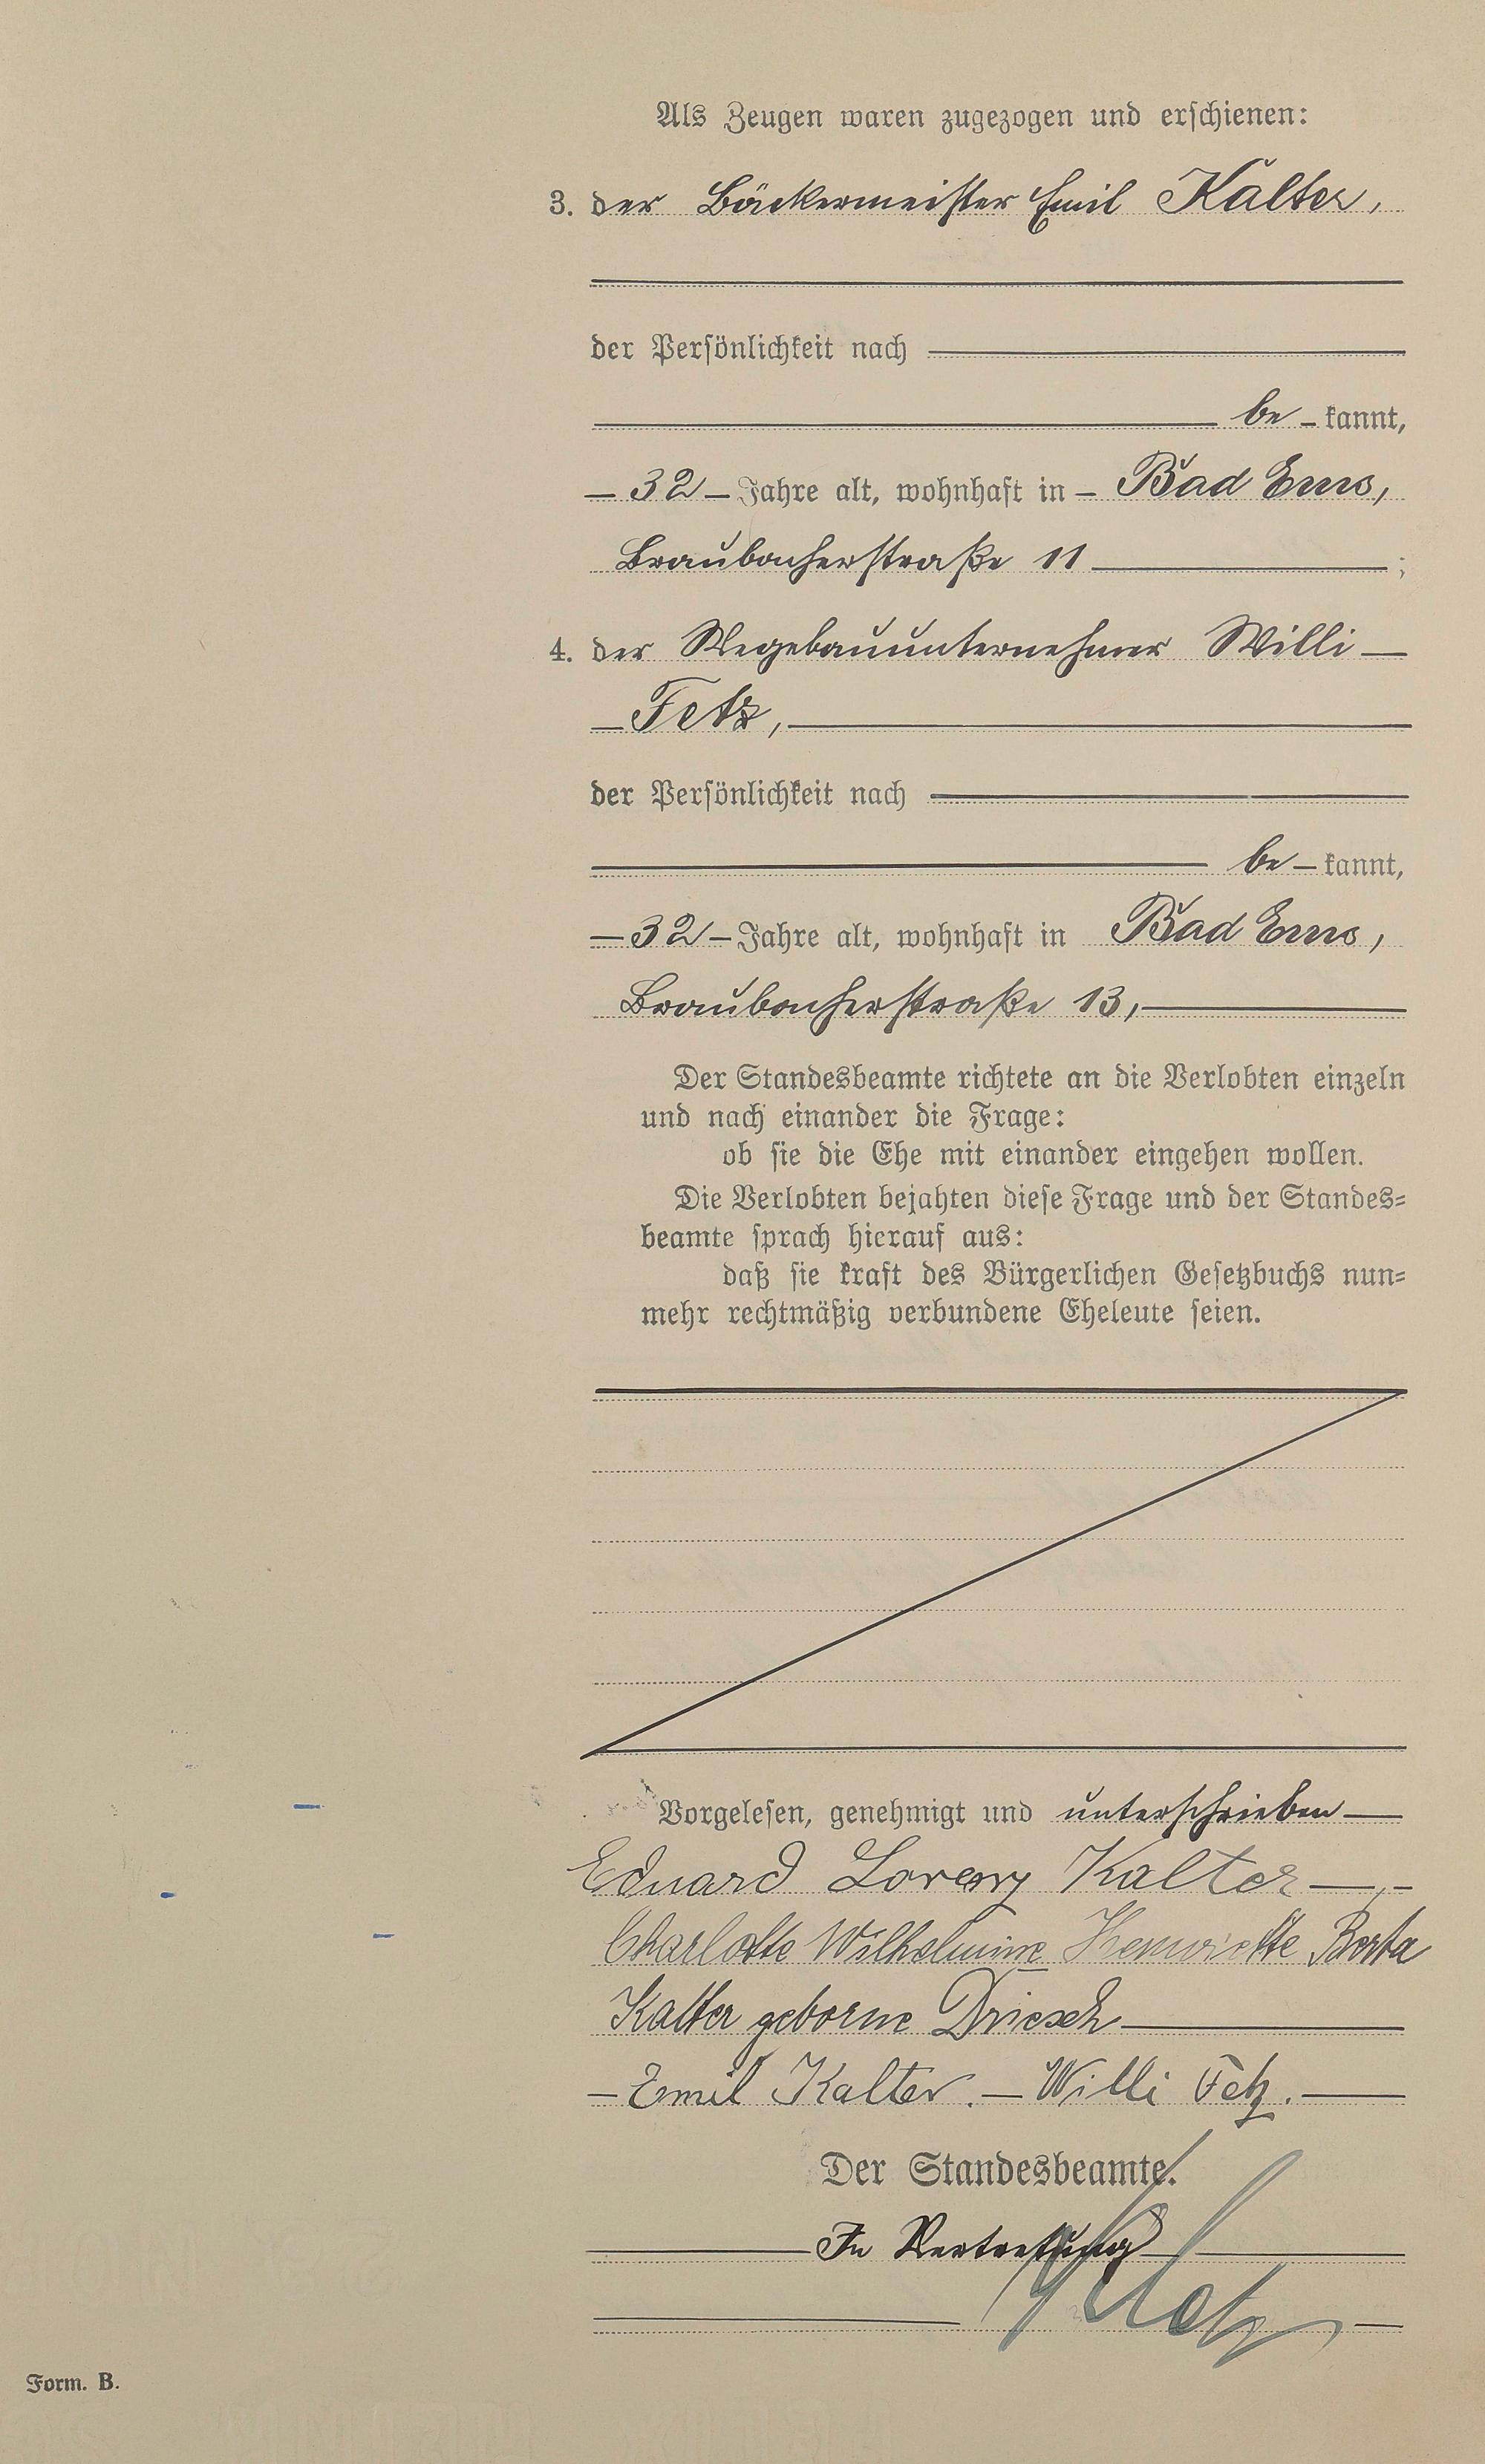 Als Zeugen waren zugezogen und erschienen:
3. der Bäckermeister Emil Kalter,
der Persönlichkeit nach
be - kannt,
- 32 - Jahre alt, wohnhaft in - Bad Ems,
Braubacherstraße 11 ;
4. der Wegebauunternehmer Willi -
- Fetz,
der Persönlichkeit nach
be - kannt,
- 32 - Jahre alt, wohnhaft in Bad Ems,
Braubacherstraße 13,
Der Standesbeamte richtete an die Verlobten einzeln
und nach einander die Frage:
ob sie die Ehe mit einander eingehen wollen.
Die Verlobten bejahten diese Frage und der Standes-
beamte sprach hierauf aus:
daß sie kraft des Bürgerlichen Gesetzbuchs nun-
mehr rechtmäßig verbundene Eheleute seien.
Vorgelesen, genehmigt und unterschrieben
Eduard Lorenz Kalter
Charlotte Wilhelmine Henriette Berta
Kalter geborne Driesch
- Emil Kalter. - Willi Fetz.
Der Standesbeamte.
In Vertretung
Form. B.